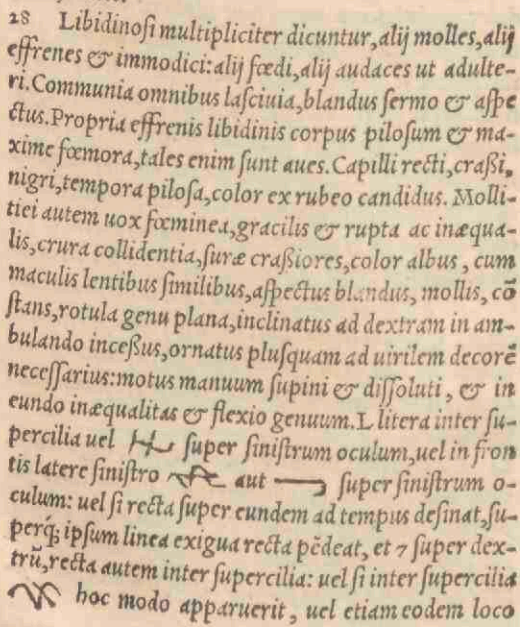 28 Libidinoſi multipliciter dicuntur, alij molles, alij
effrenes & immodici: alij fœdi, alij audaces ut adulte-
ri. Communia omnibus laſciuia, blandus ſermo & aſpe
ctus. Propria effrenis libidinis corpus piloſum & ma-
xime fœmora, tales enim ſunt aues. Capilli recti, craßi,
nigri, tempora piloſa, color ex rubeo candidus. Molli-
tiei autem uox fœminea, gracilis & rupta ac inæqua-
lis, crura collidentia, ſuræ craßiores, color albus, cum
maculis lentibus ſimilibus, aſpectus blandus, mollis, cō
ſtans, rotula genu plana, inclinatus ad dextram in am-
bulando inceßus, ornatus pluſquam ad uirilem decorē
neceſſarius: motus manuum ſupini & diſſoluti, & in
eundo inæqualitas & flexio genuum. L litera inter ſu-
percilia uel ſuper ſiniſtrum oculum, uel in fron
tis latere ſiniſtro aut ſuper ſiniſtrum o-
culum: uel ſi recta ſuper eundem ad tempus deſinat, ſu-
perq́; ipſum linea exigua recta pēdeat, et 7 ſuper dex-
trū, recta autem inter ſupercilia: uel ſi inter ſupercilia
hoc modo apparuerit, uel etiam eodem loco